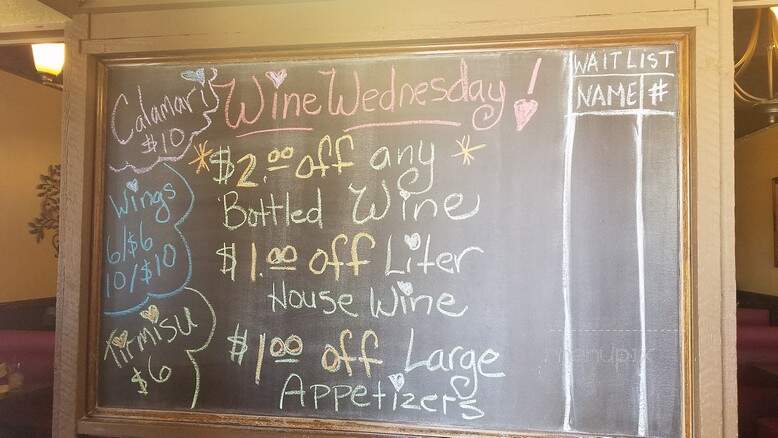 Calamari
$10
Wings
6/$6
10/$10
Tirmisu
$6
Wine Wednesday!
*$2.00 off any*
Bottled Wine
$1.00 off Liter
House Wine
$1.00 off Large
Appetizers
WAIT LIST
NAME #
menupix